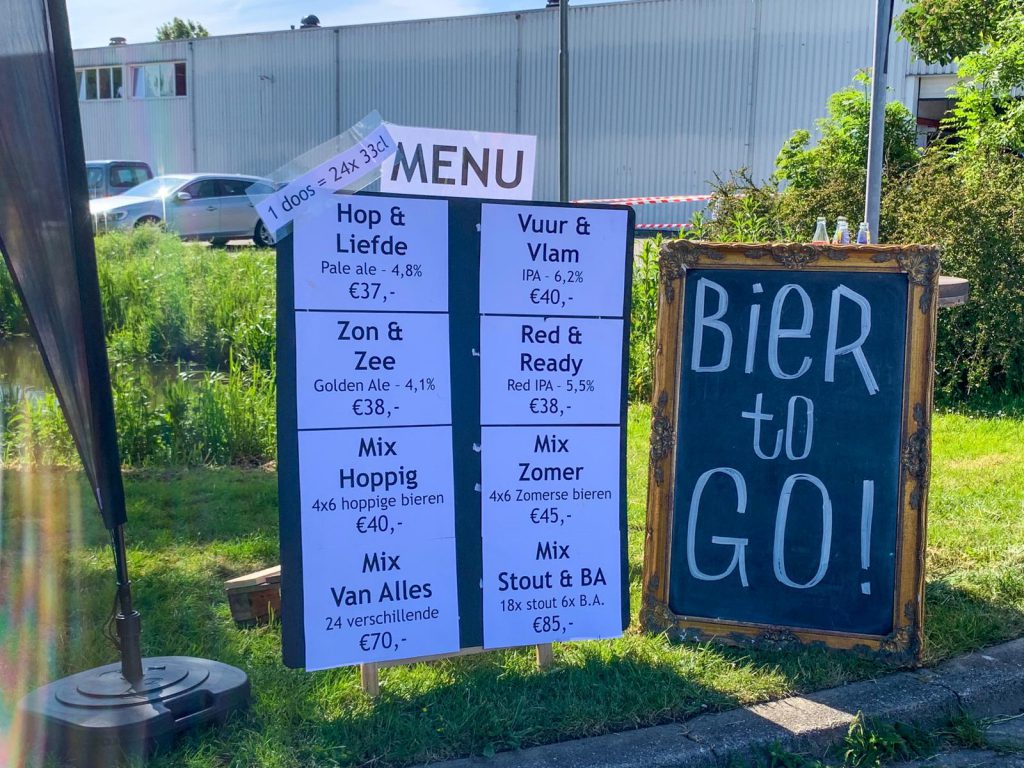 1 doos = 24x 33cl
MENU
Hop &
Liefde
Pale ale - 4,8%
€37,-
Zon &
Zee
Golden Ale - 4,1%
€38,-
Mix
Hoppig
4x6 hoppige bieren
€40,-
Mix
Van Alles
24 verschillende
€70,-
Vuur &
Vlam
IPA - 6,2%
€40,-
Red &
Ready
Red IPA - 5,5%
€38,-
Mix
Zomer
4x6 Zomerse bieren
€45,-
Mix
Stout & BA
18x stout 6x B.A.
€85,-
BiER
to
GO!